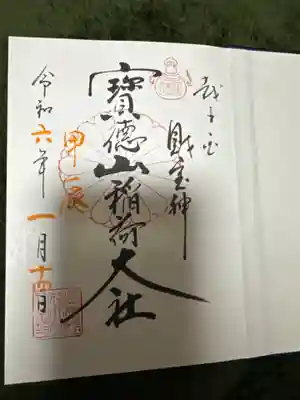 財宝神
寶德山稲荷大社
甲辰
令和六年一月十四日